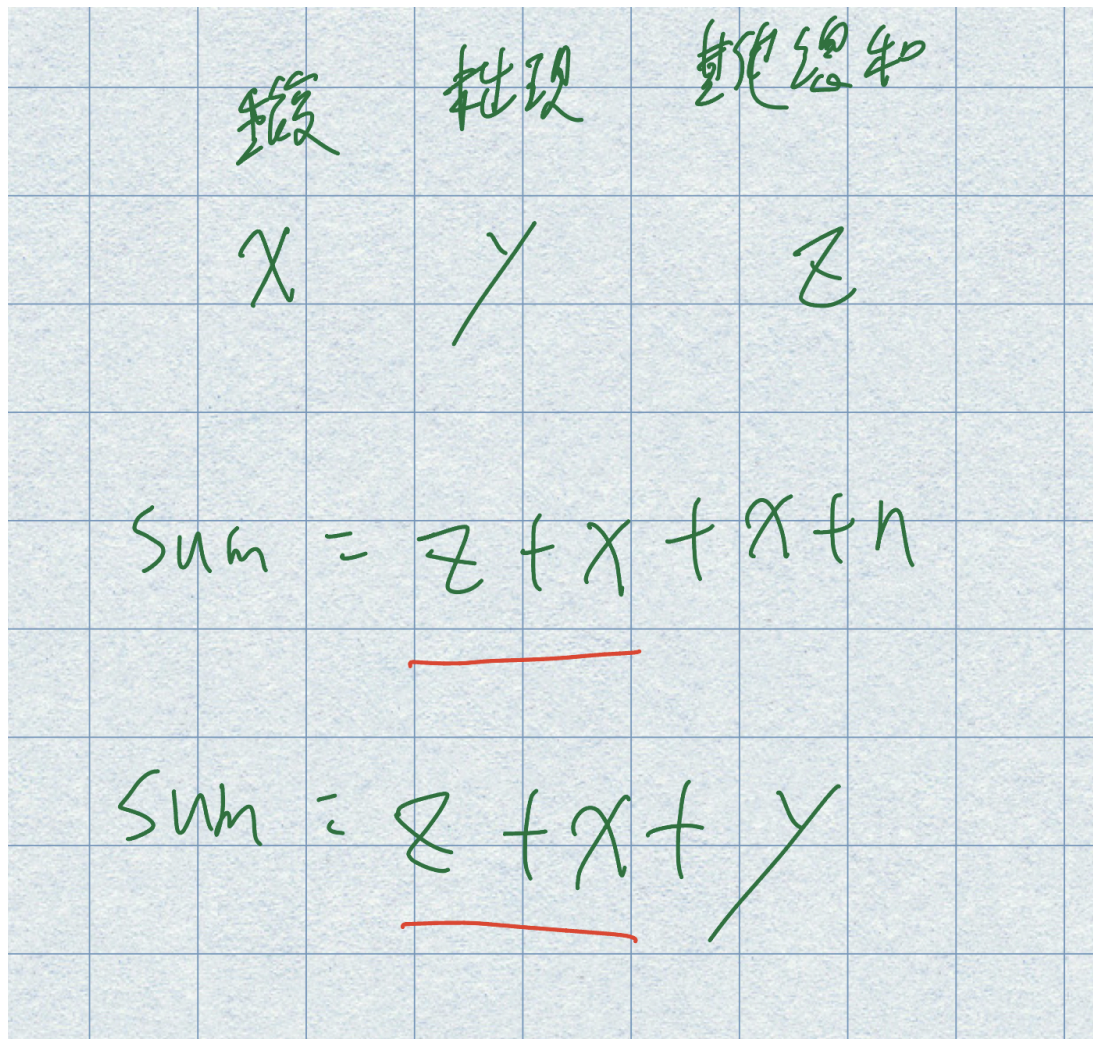 重複 總和
x y z
Sum = z + x + x + n
Sum = z + x + y